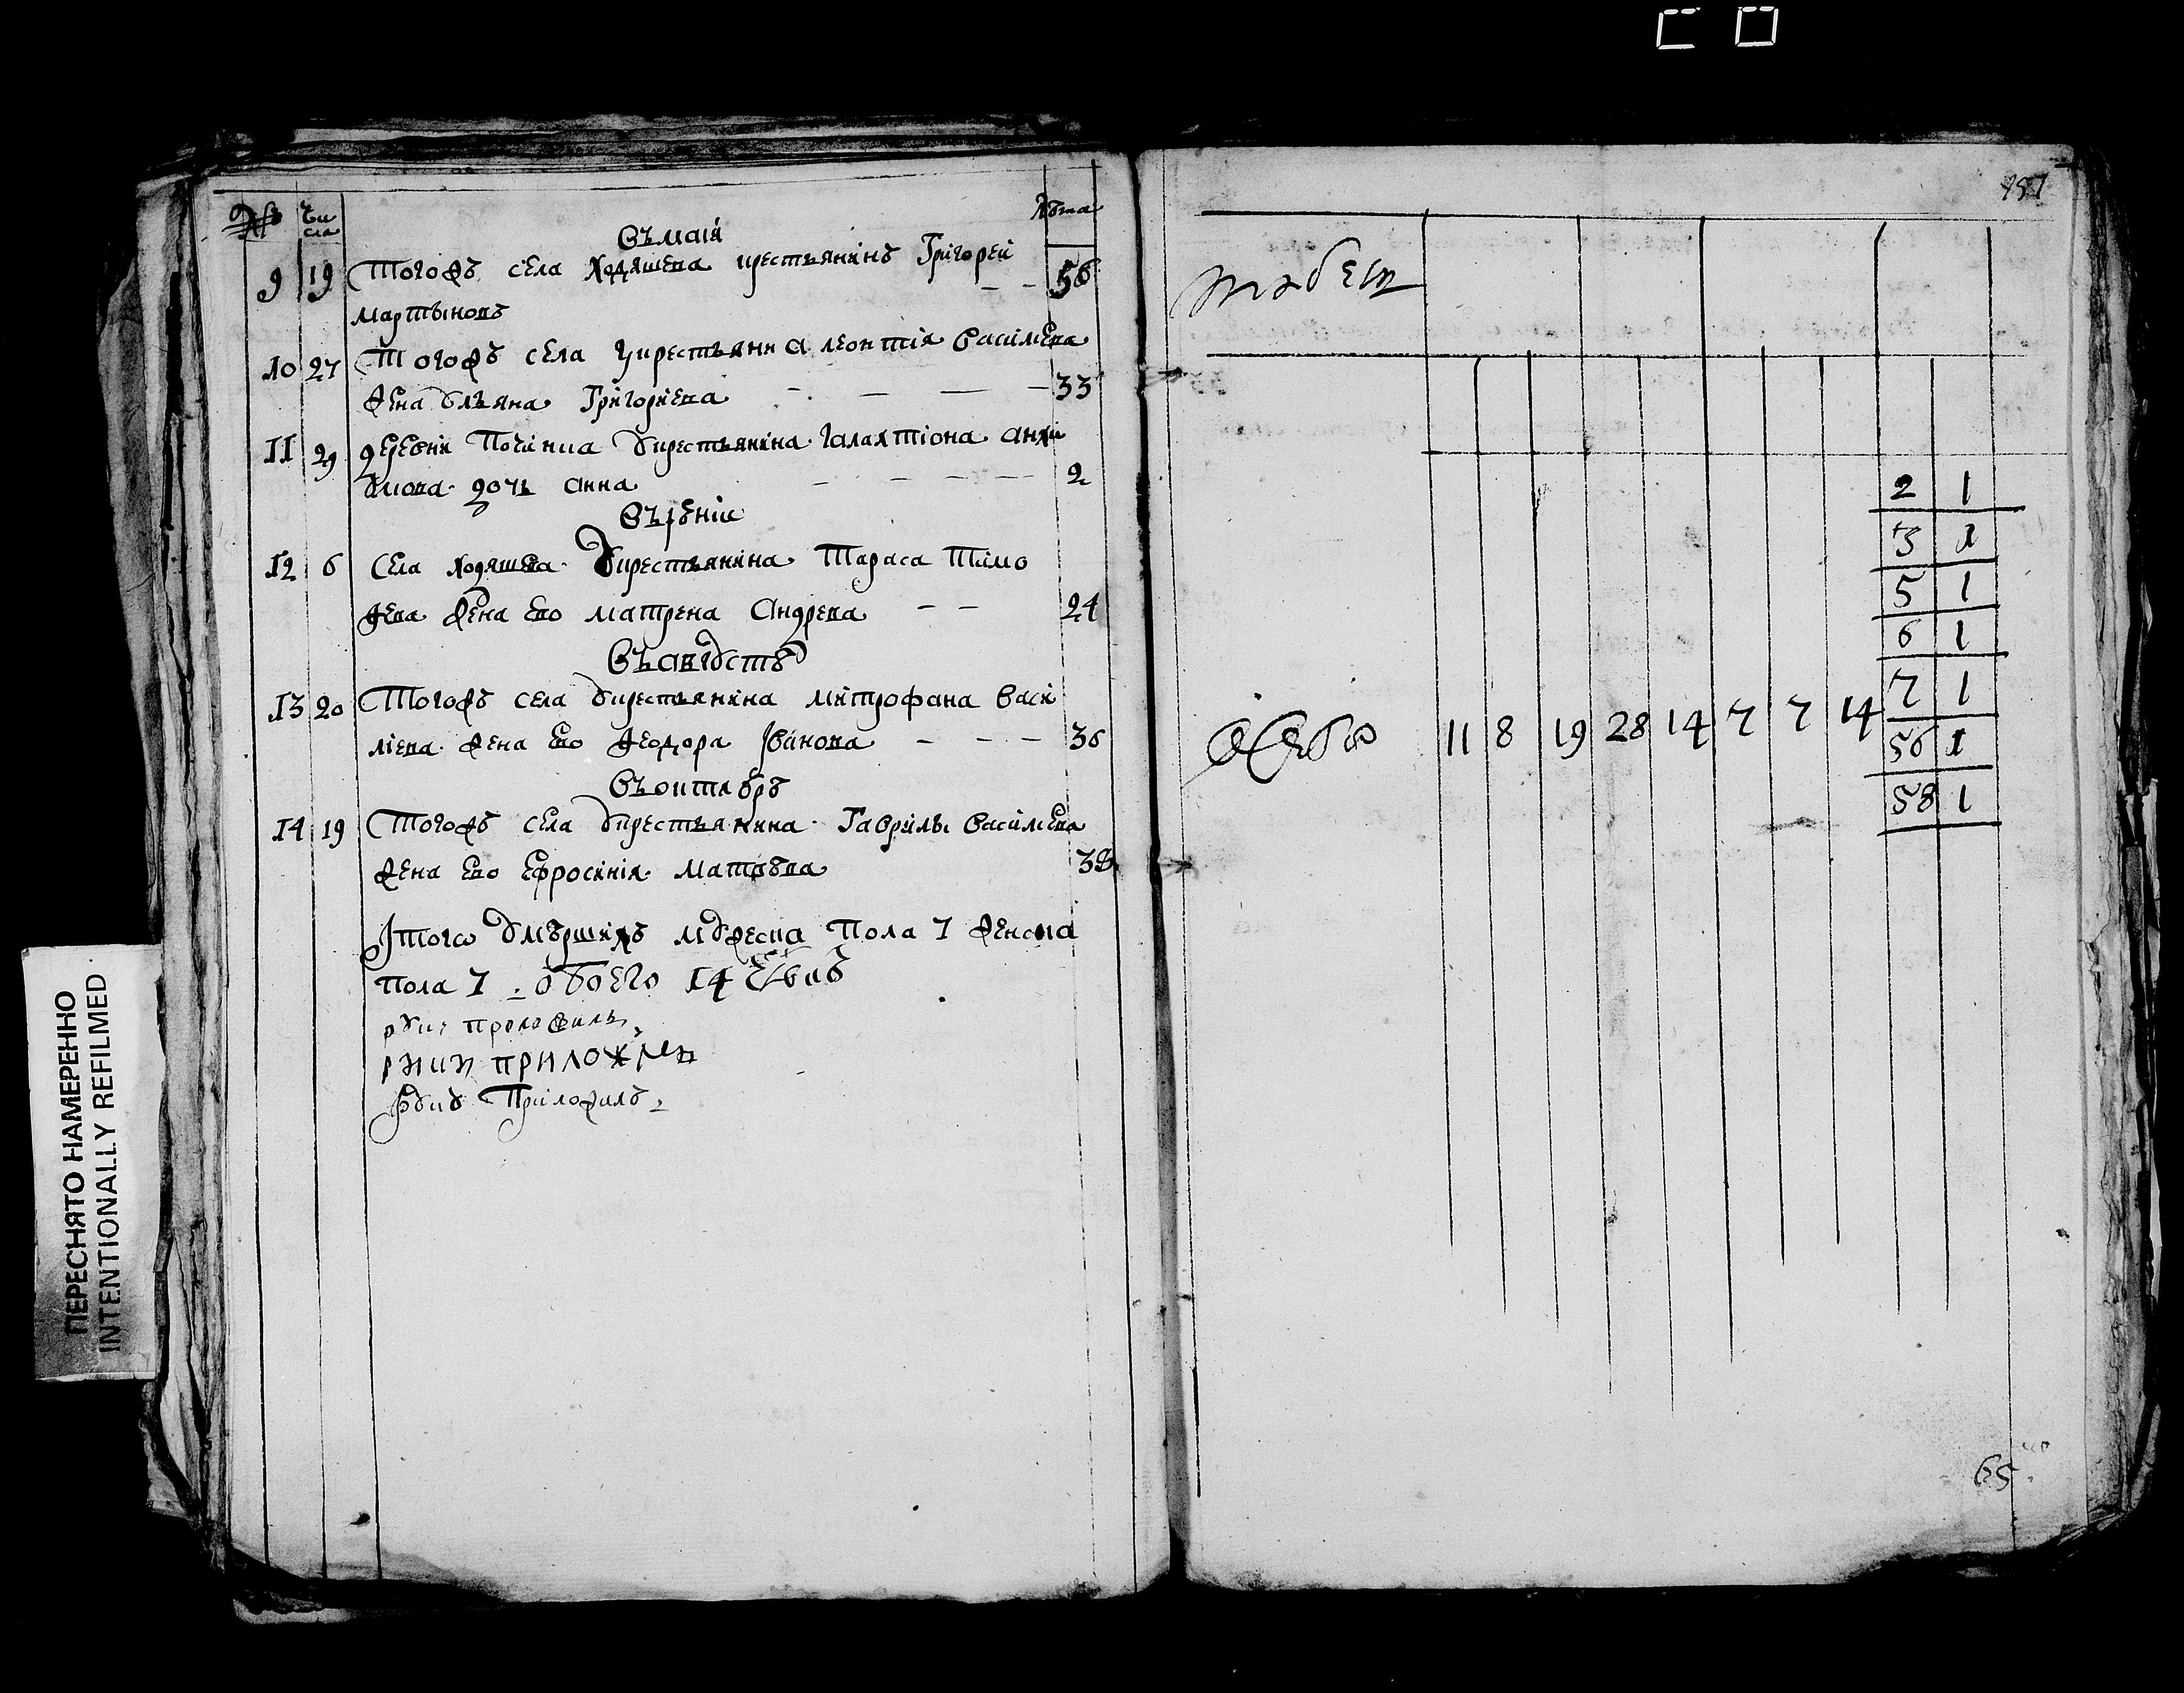 № Чи сла Лѣта
Въ маіи
9 19 Тогожъ села Ходяшева крестьянинъ Григорей 56
Мартыновъ
10 27 Тогожъ села крестьянина Леонтія Василиева
жена Ульяна Григориева 33
11 29 деревни Починка крестьянина Галахтіона
дочь Анна 2
Въ іюніи
12 6 Села Ходяшева крестьянина Тараса Тимо
феева жена ево Матрена Андреева 24
Въ августѣ
13 20 Тогожъ села крестьянина Митрофана Васи
лиева жена ево Феодора Иванова 36
Въ октябрѣ
14 19 Тогожъ села крестьянина Гаврилы Василиева
жена ево Ефросинія Матвѣева 38
Итого умѣршихъ мужеска пола 7 женска
пола 7 обоего 14 человѣкъ
руку приложилъ
руку приложилъ
руку приложилъ
157
2 1
3 1
5 1
6 1
7 1
11 8 19 28 14 7 7 14
56 1
58 1
65
ПЕРЕСНЯТО НАМЕРЕННО
INTENTIONALLY REFILMED